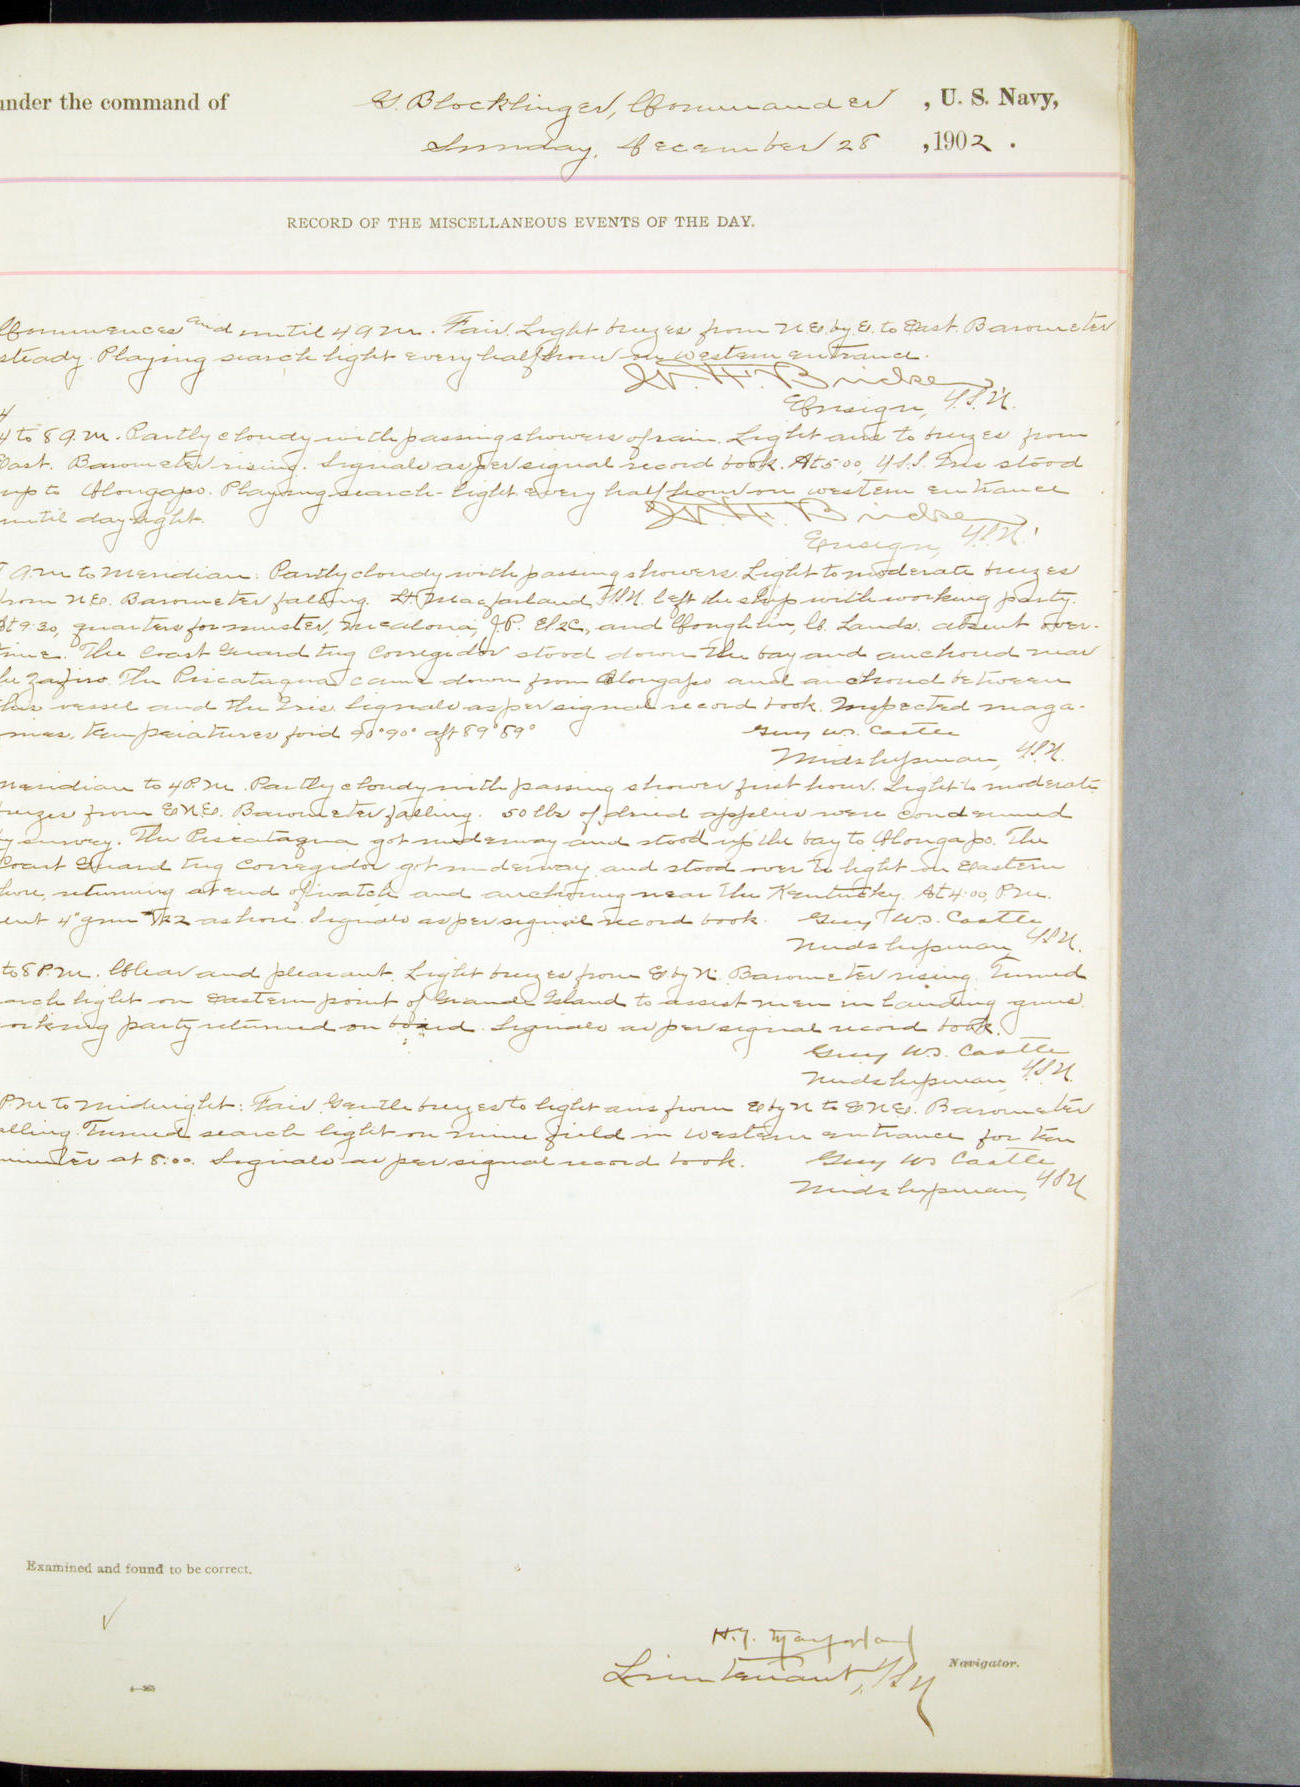 under the command of G. Blocklinger, Commander , U. S. Navy,
Sunday, December 28 , 1902 .
RECORD OF THE MISCELLANEOUS EVENTS OF THE DAY.
Commences and until 4 a.m. Fair. Light breezes from N.E. by E. to East. Barometer
steady. Playing search light every half hour on western entrance.
Ensign, U.S.N.
4
4 to 8 a.m. Partly cloudy with passing showers of rain. Light airs to breezes from
East. Barometer rising. Signals as per signal record book. At 5:00, U.S.S. Iris stood
up to Olongapo. Playing search-light every half hour on western entrance
until daylight.
Ensign, U.S.N.
a.m. to Meridian: Partly cloudy with passing showers. Light to moderate breezes
from N.E. Barometer falling. Lt. Macfarland, U.S.N. left the ship with working party.
At 9:30, quarters for muster, J.P. El2c., and Coughlin, C. Lands. absent over-
time. The Coast Guard tug Corregidor stood down the bay and anchored near
the Zafiro. The Piscataqua came down from Olongapo and anchored between
this vessel and the Iris. Signals as per signal record book. Inspected maga-
zines, temperatures for'd 90° 90° aft 89° 89°
Guy W.S. Castle
Midshipman, U.S.N.
Meridian to 4 P.M. Partly cloudy with passing shower first hour. Light to moderate
breezes from E.N.E. Barometer falling. 50 lbs of dried apples were condemned
by survey. The Piscataqua got underway and stood up the bay to Olongapo. The
Coast Guard tug Corregidor got underway and stood over to light on Eastern
shore, returning at end of watch and anchoring near the Kentucky. At 4:00 P.M.
sent 4" gun ashore. Signals as per signal record book. Guy W.S. Castle
Midshipman U.S.N.
to 8 P.M. Clear and pleasant. Light breezes from E by N. Barometer rising. Turned
search light on Eastern point of Grande Island to assist men in landing guns.
working party returned on board. Signals as per signal record book.
Guy W.S. Castle
Midshipman, U.S.N.
P.M. to Midnight: Fair. Gentle breezes to light airs from E by N to E.N.E. Barometer
falling. Turned search light on mine field in western entrance for ten
minutes at 8:00. Signals as per signal record book. Guy W.S. Castle
Midshipman, U.S.N.
Examined and found to be correct.
Lieutenant, U.S.N. Navigator.